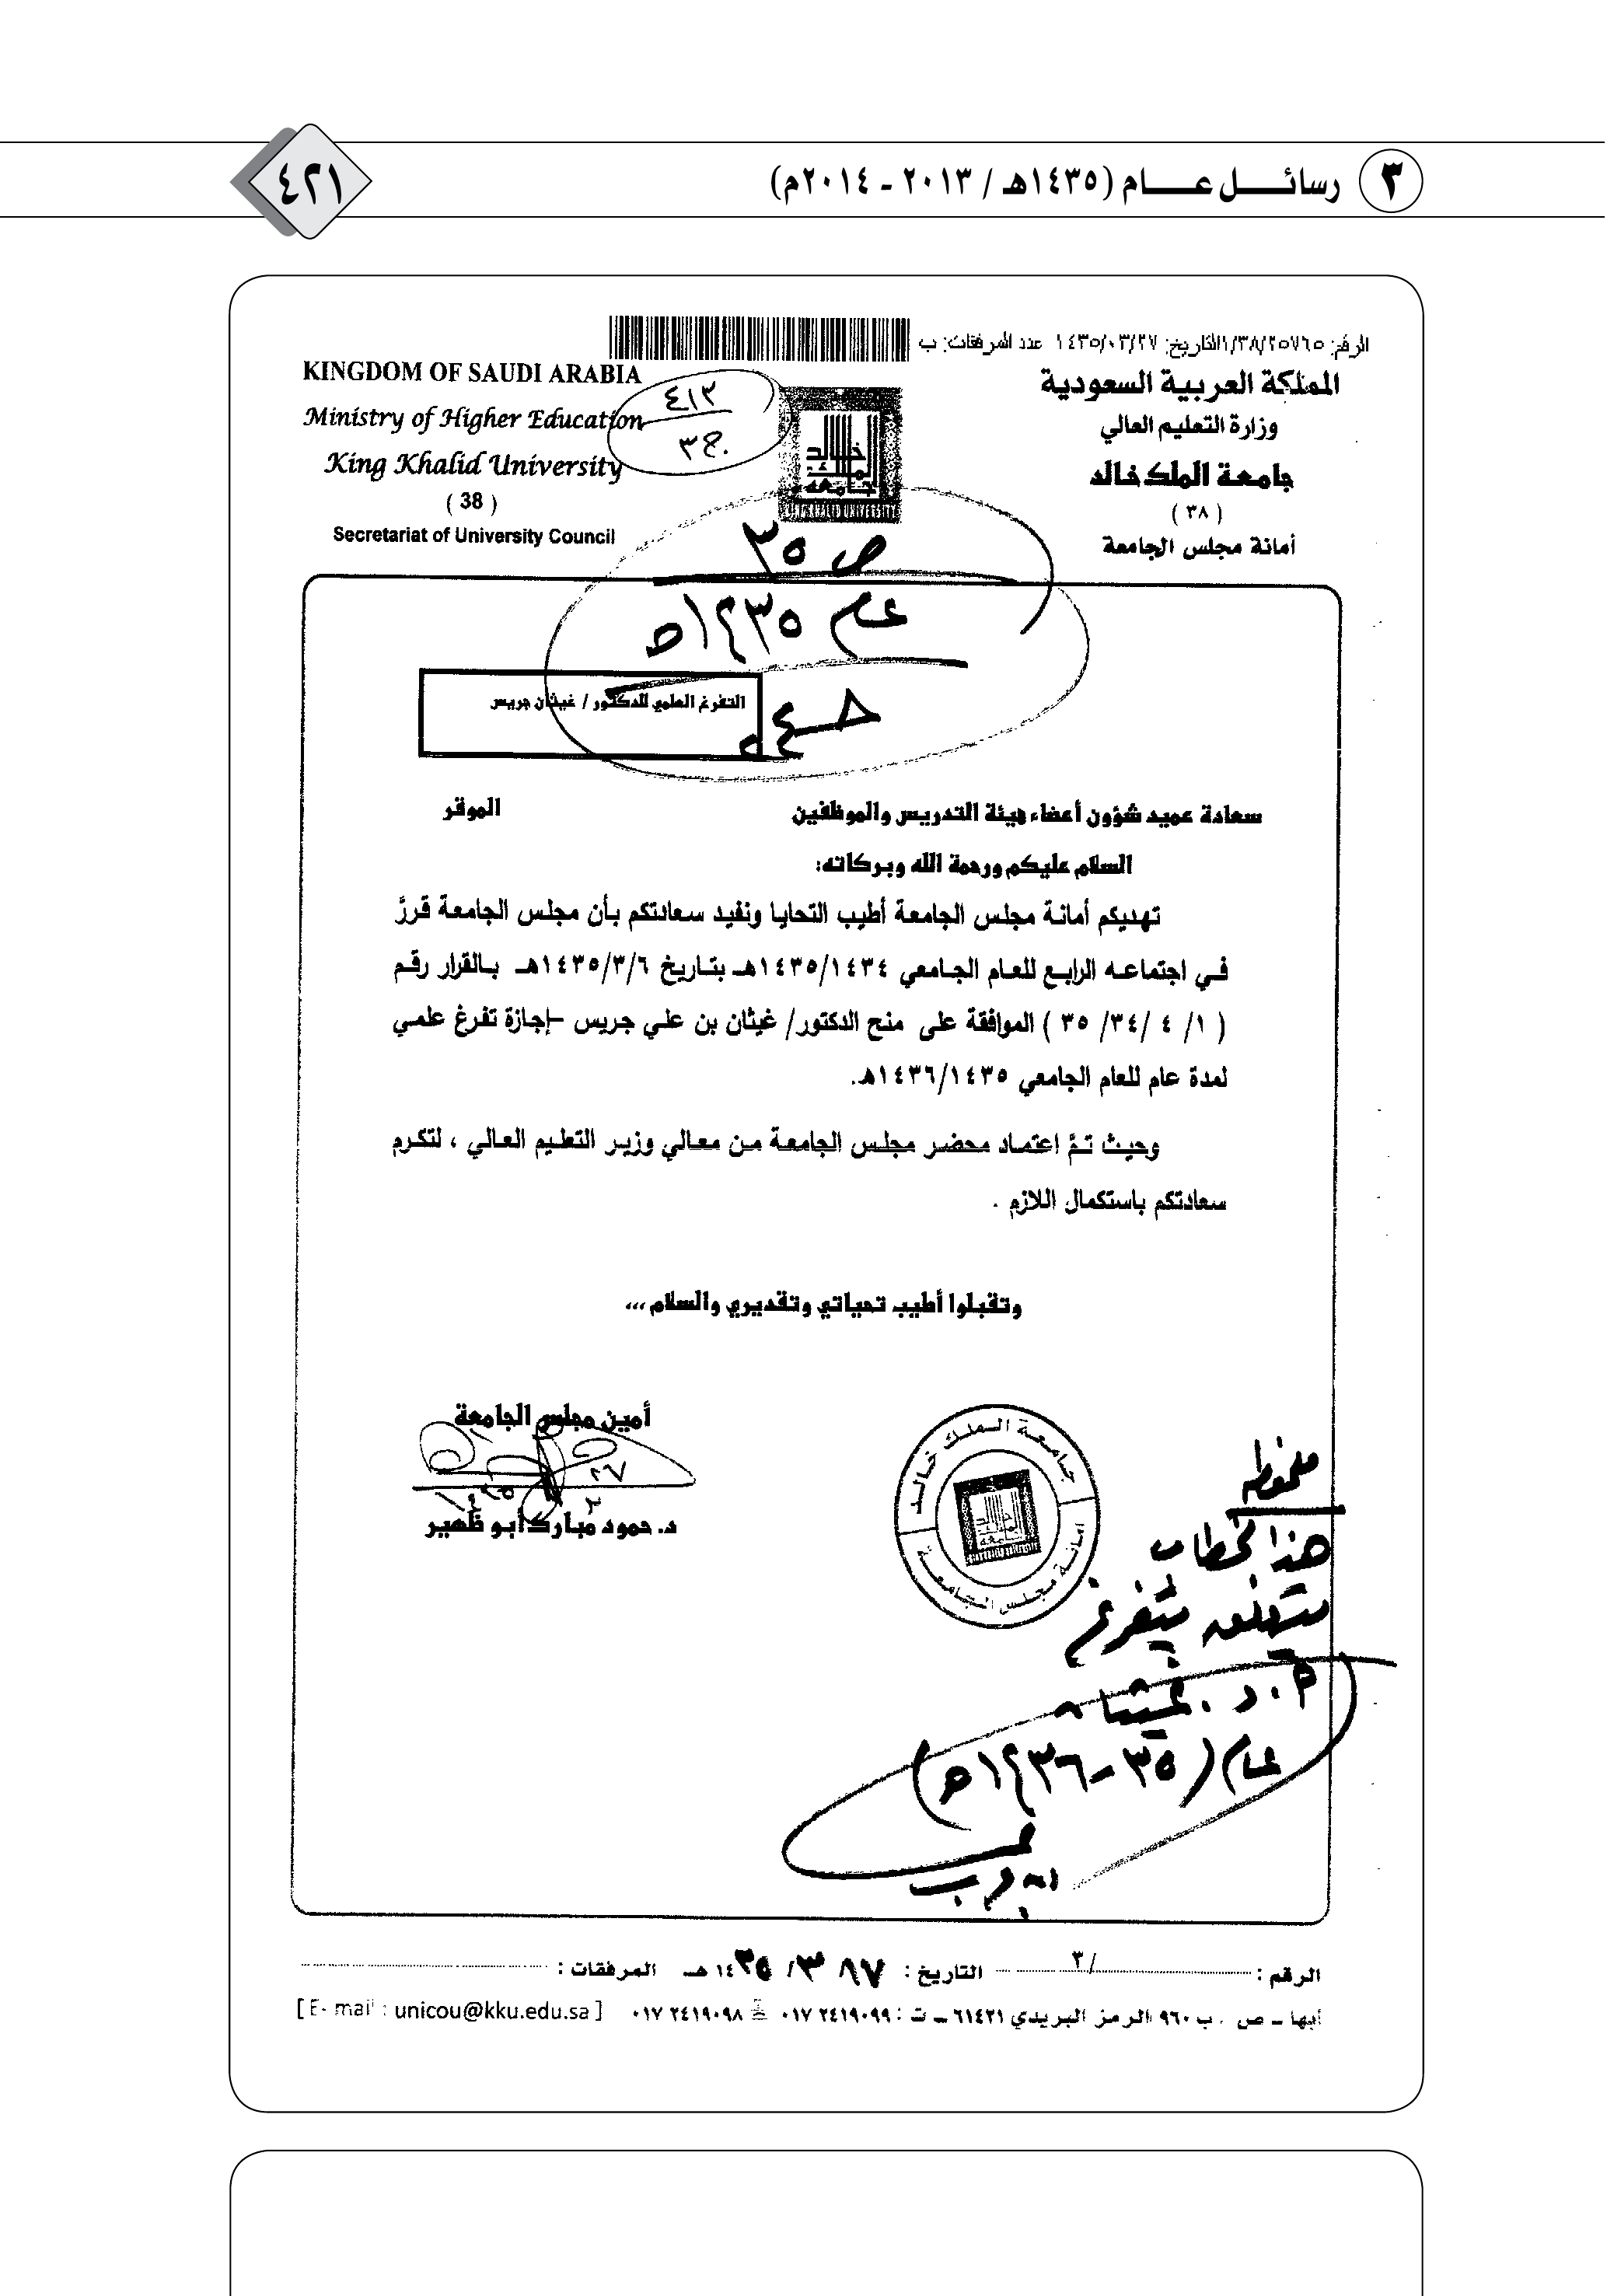 ٣ رسائل عام (١٤٣٥هـ / ٢٠١٣ ـ ٢٠١٤م)
٤٢١
الرقم: ١/٣٨/٢٥٧٦٥ التاريخ: ١٤٣٥/٠٣/٢٧ عدد المرفقات: ب
المملكة العربية السعودية
وزارة التعليم العالي
جامعة الملك خالد
( ٣٨ )
أمانة مجلس الجامعة
KINGDOM OF SAUDI ARABIA
Ministry of Higher Education
King Khalid University
( 38 )
Secretariat of University Council
٤١٣
ج٣
جامعة الملك خالد
KING KHALID UNIVERSITY
ص ٣٥
عام ١٤٣٥هـ
التفرغ العلمي للدكتور / غيثان جريس
سعادة عميد شؤون أعضاء هيئة التدريس والموظفين الموقر
السلام عليكم ورحمة الله وبركاته:
تهديكم أمانة مجلس الجامعة أطيب التحايا ونفيد سعادتكم بأن مجلس الجامعة قررّ
في اجتماعه الرابع للعام الجامعي ١٤٣٥/١٤٣٤هـ بتاريخ ١٤٣٥/٣/٦هـ بالقرار رقم
( ١/ ٤ /٣٤/ ٣٥ ) الموافقة على منح الدكتور/ غيثان بن علي جريس –إجازة تفرغ علمي
لمدة عام للعام الجامعي ١٤٣٦/١٤٣٥هـ.
وحيث تمَّ اعتماد محضر مجلس الجامعة من معالي وزير التعليم العالي ، لتكرم
سعادتكم باستكمال اللازم .
وتقبلوا أطيب تحياتي وتقديري والسلام ،،،
أمين مجلس الجامعة
د. حمود مبارك أبو ظهير
جامعة الملك خالد
أمانة مجلس الجامعة
ملحوظة
هذا الخطاب
متعلق بتفرغ
أ.د. غيثان
عام (٣٥-١٤٣٦هـ)
الرقم : /٣ التاريخ : ٢٧/ ٣/ ١٤٣٥ هـ المرفقات :
أبها ـ ص . ب ٩٦٠ الرمز البريدي ٦١٤٢١ ـ ت : ٠١٧ ٢٤١٩٠٩٩ ٠١٧ ٢٤١٩٠٩٨ [ E- mail : unicou@kku.edu.sa ]